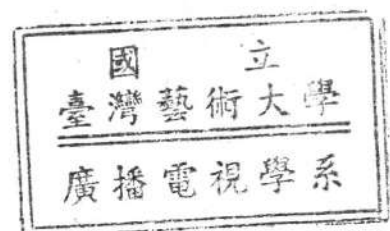 國立
臺灣藝術大學
廣播電視學系